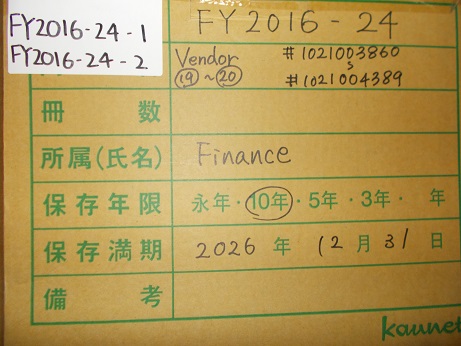 FY2016-24-1
FY2016-24-2
FY 2016 - 24
Vendor #1021003860
⑲~⑳ #1021004389
冊数
所属(氏名) Finance
保存年限 永年・10年・5年・3年・ 年
保存満期 2026年 12月31日
備考
kaunet